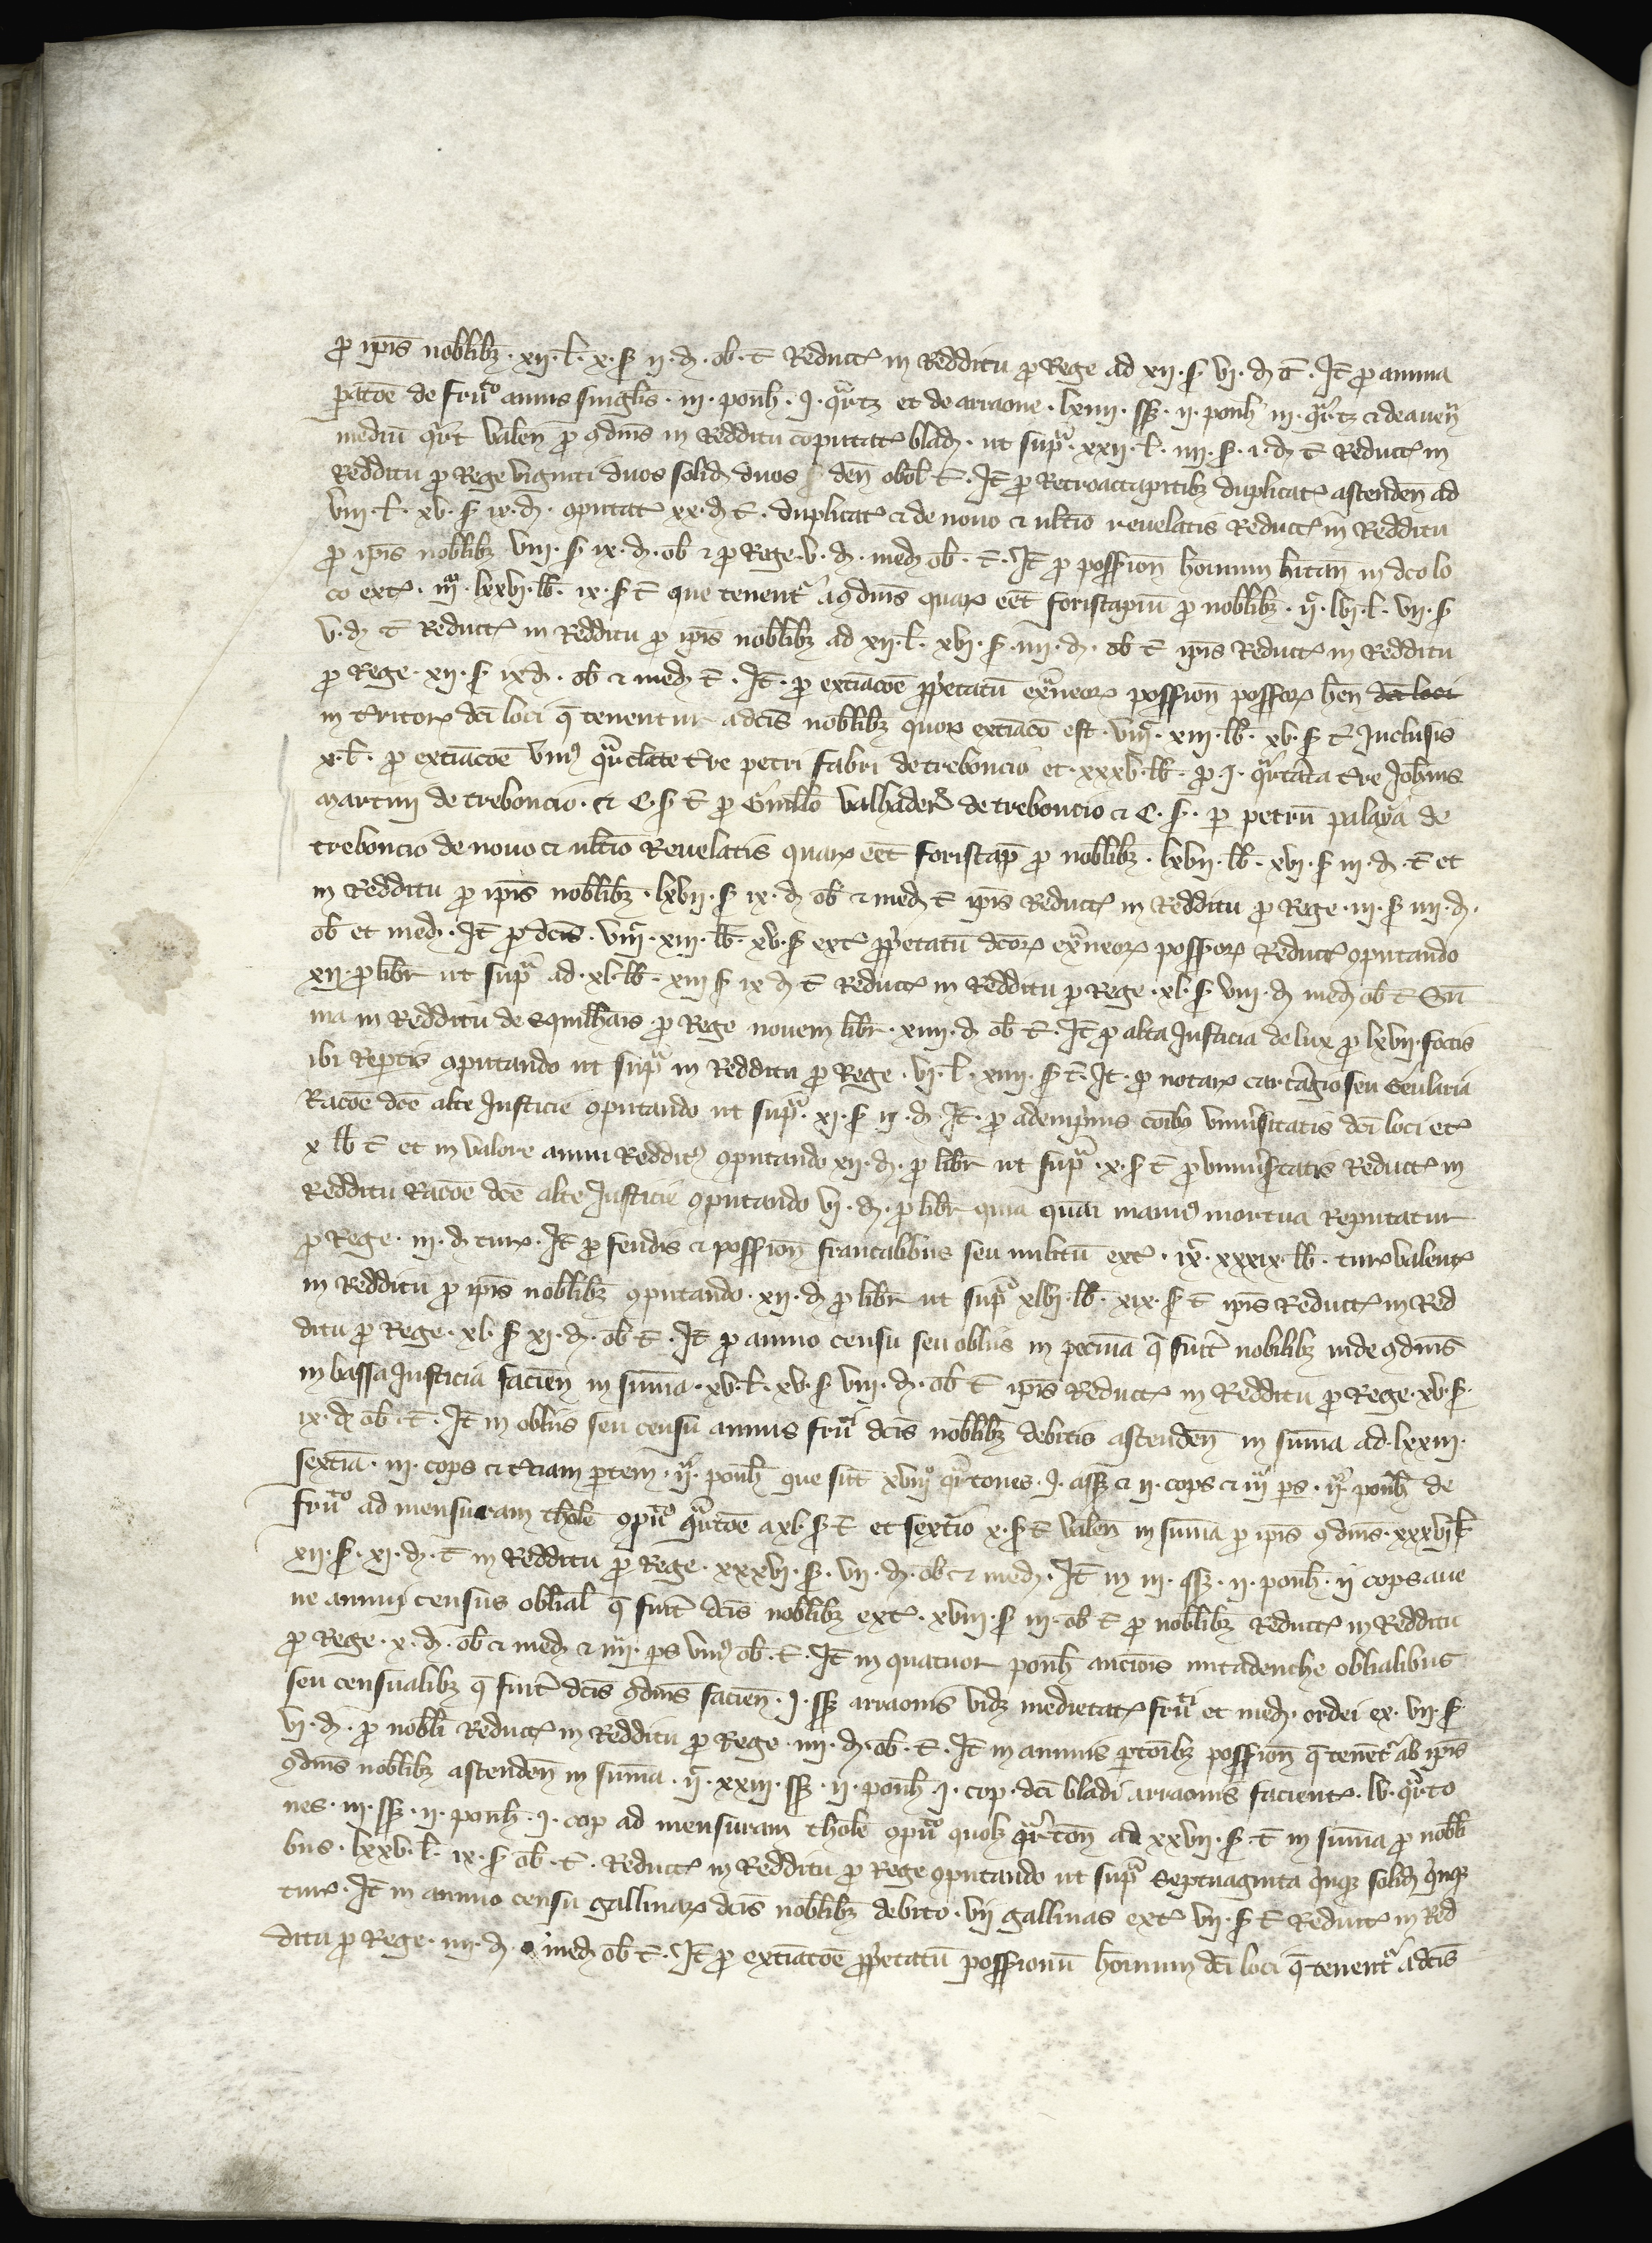 ꝓ ip̄is nobĺibꝫ · xij · ł · x · s̃ ij · d̃ · ob · t̄ Reduct̃ in Redditu ꝓ Rege ad xij · s̃ vj · d̃ t̄ · It̄ ꝓ annua
ꝑatōe de fruᵗᵒ annis singlis · iij · ponh̄ · j · qᵃrtz et de arraone · lxiiij · sꝫ · ij · ponh̄ iij · qᵃrtz et de auen̄
mediū qᵃrt valen̄ ꝓ ꝯdnis in Redditu cōputat̃ blad̃ · ut supᵃ · xxij · ł · iiij · s̃ · i · d̃ t̄ Reduct̃ in
Redditu ꝓ Rege viginti duos solid̃ duos den̄ obol̄ t̄ · It̄ ꝓ Retroaccapitibꝫ duplicat̃ ascenden̄ ad
viij · ł · xv · s̃ ix · d̃ · ꝯputat̃ xx · d̃ t̄ · duplicat̃ et de nouo et ultīo reuelatis Reduct̃ in Redditu
ꝓ ip̄is nobĺibꝫ viij · s̃ ix · d̃ · ob̄ et ꝓ Rege · v · d̃ · med̃ ob̄ · t̄ · It̄ ꝓ possion̄ hominum hitan̄ in dc̄o lo
co ext̃ · iijᵐ · lxxvj · łb · ix · s̃ t̄ que tenentʳ a ꝯdnis quaꝝ eēt foriscapiū ꝓ nobĺibꝫ · ijᶜ · lvj · ł · vij · s̃
v · d̃ t̄ Reduct̃ in Redditu ꝓ ip̄is nobĺibꝫ ad xij · ł · xvj · s̃ · iiij · d̃ · ob̄ t̄ ip̄is Reduct̃ in Redditu
ꝓ Rege · xij · s̃ ix d̃ · ob̄ et med̃ t̄ · It̄ · ꝓ extiācōe ꝓp̄etatū exᵃneoꝝ possion̄ possoꝝ ben̄ dc̄i loci
in tr̄itorꝝ dc̄i loci q̄ tenentur a dc̄is nobĺibꝫ quoꝝ extiācō est · viijᶜ · xiij · łb · xv · s̃ t̄ Inclusis
x · ł · ꝓ extiācōe vniꝰ qᵃrtlate tr̄e petri fabri de treboncio et · xxxv · łb · ꝓ j · qᵃrtata tr̄e Joh̄nis
martini de treboncio · et C · s̃ t̄ ꝓ Guillo valhaderij de treboncio et C · s̃ · ꝑ petrū palaya de
treboncio de nouo et ultīo Reuelatis quaꝝ eēt foriscap̄ ꝓ nobĺibꝫ · lxvij · łb · xvj · s̃ iij · d̃ · t̄ et
in Redditu ꝓ ip̄is nobĺibꝫ · lxvij · s̃ ix · d̃ ob̄ et med̃ t̄ ip̄is Reduct̃ in Redditu ꝓ Rege · iij · s̃ iiij · d̃ ·
ob̄ et med̃ · It̄ ꝓ dc̄is · viijᶜ · xiij · łb · xv · s̃ ext̃ ꝓp̄etatū dc̄oꝝ exᵃneoꝝ possoꝝ Reduct̃ ꝯputando
xij · ꝓ libr̄ ut supᵃ ad · xl · łb · xiij s̃ ix d̃ t̄ Reduct̃ in Redditu ꝓ Rege · xl · s̃ viij · d̃ med̃ ob̄ t̄ Sū
ma in Redditu de Equilhais ꝓ Rege nouem libr̄ · xiiij · d̃ ob̄ t̄ · It̄ ꝓ alta Justicia de lux ꝓ lxvij · focis
ibi Rep̄tis ꝯputando ut supᵃ in Redditu ꝓ Rege · vj · ł · xiiij · s̃ t̄ · It̄ · ꝓ notarꝝ cartᵃgio seu Scularia
Racōe dc̄e alte Justicie ꝯputando ut supᵃ · xj · s̃ ij · d̃ · It̄ · ꝓ ademprijnis cōibꝰ vniu̾sitatis dc̄i loci et̃
x łb t̄ et in valore annui Redditꝰ ꝯputando xij · d̃ · ꝓ libr̄ ut supᵃ · x · s̃ t̄ ꝓ vniu̾sitatis Reduct̃ in
Redditu Racōe dc̄e alte Justicie ꝯputando vj · d̃ · ꝓ libr̄ quia quasi manꝰ mortua Reputatur
ꝓ Rege · iij · d̃ turꝝ · It̄ ꝓ feudis et possion̄ francalibus seu militū ext̃ · ixᶜ · xxxix · łb · turꝝ valent̃
in Redditu ꝓ ip̄is nobĺibꝫ ꝯputando · xij · d̃ ꝓ libr̄ ut supᵃ xlvj · łb · xix · s̃ t̄ ip̄is Reduct̃ in Red
ditu ꝓ Rege · xl · s̃ xj · d̃ · ob̄ t̄ · It̄ ꝓ annuo censu seu obliis in pecunia q̄ fiūt nobilibꝫ inde ꝯdnis
in bassa Justicia facien̄ in sūma · xv · ł · xv · s̃ viij · d̃ · ob̄ t̄ ip̄is Reduct̃ in Redditu ꝓ Rege · xv · s̃ ·
ix · d̃ ob̄ · t̄ · It̄ in obliis seu censu annuis fruᵗⁱ dc̄is nobĺibꝫ debitis ascenden̄ in sūma ad · lxxiij ·
sextia · iij · cops et tr̄ciam ꝑtem · ijᵃ · ponh̄ que sūt xviijᵒ qᵃrtones · j · assꝫ et ij · cops et iijᵃ ps · ijᵉ ponh̄ de
fruᵗᵒ ad mensuram thole ꝯpᵗᵒ qᵃrtōe a xl · s̃ t̄ et sextᵃio x · s̃ t̄ valen̄ in sūma ꝓ ip̄is ꝯdnis · xxxvj ł
xij · s̃ · xj · d̃ · t̄ in Redditu ꝓ Rege · xxxvj · s̃ · vij · d̃ · ob̄ et med̃ · It̄ in iij · sꝫ · ij · ponh̄ · ij cops aue
ne annui census oblial̄ q̄ fiūt dc̄is nobĺibꝫ ext̃ · xviij · s̃ iij · ob̄ t̄ ꝓ nobĺibꝫ Reduct̃ in Redditu
ꝓ Rege · x · d̃ · ob̄ et med̃ et iiij · ps vniꝰ ob̄ · t̄ · It̄ in quatuor ponh̄ anc̄iois mitadenche oblialibus
seu censualibꝫ q̄ fiūt dc̄is ꝯdnis facien̄ · j · sꝫ arraonis vidꝫ medietat̃ fruᵗⁱ et med̃ · ordei ex · vij · s̃
vj · d̃ · ꝓ nobĺi Reduct̃ in Redditu ꝓ Rege · iiij · d̃ · ob̄ · t̄ · It̄ in annuis ꝑtōibꝫ possion̄ q̄ tenētʳ ab ip̄is
ꝯdnis nobĺibꝫ ascenden̄ in sūma · ijᶜ · xxiij · sꝫ · ij · ponh̄ j · cop · dc̄i bladi arraonis facient̃ · lv · qᵃrto
nes · iij · sꝫ · ij · ponh̄ · j · cop ad mensuram thole ꝯpᵗᵒ quolꝫ qᵃrton̄ ad xxvij · s̃ · t̄ in sūma ꝓ nobĺi
bus · lxxv · ł · ix · s̃ ob̄ · t̄ · Reduct̃ in Redditu ꝓ Rege ꝯputando ut supᵃ Septuaginta qⁱnqꝫ solid̃ qⁱnqꝫ
turꝝ · It̄ in annuo censu gallinaꝝ dc̄is nobĺibꝫ debito · vij gallinas ext̃ vij · s̃ t̄ Reduct̃ in Red
ditu ꝓ Rege · iiij · d̃ · med̃ ob̄ t̄ · It̄ ꝓ extiācōe ꝓp̄etatū possionū hominum dc̄i loci q̄ tenentʳ a dc̄is